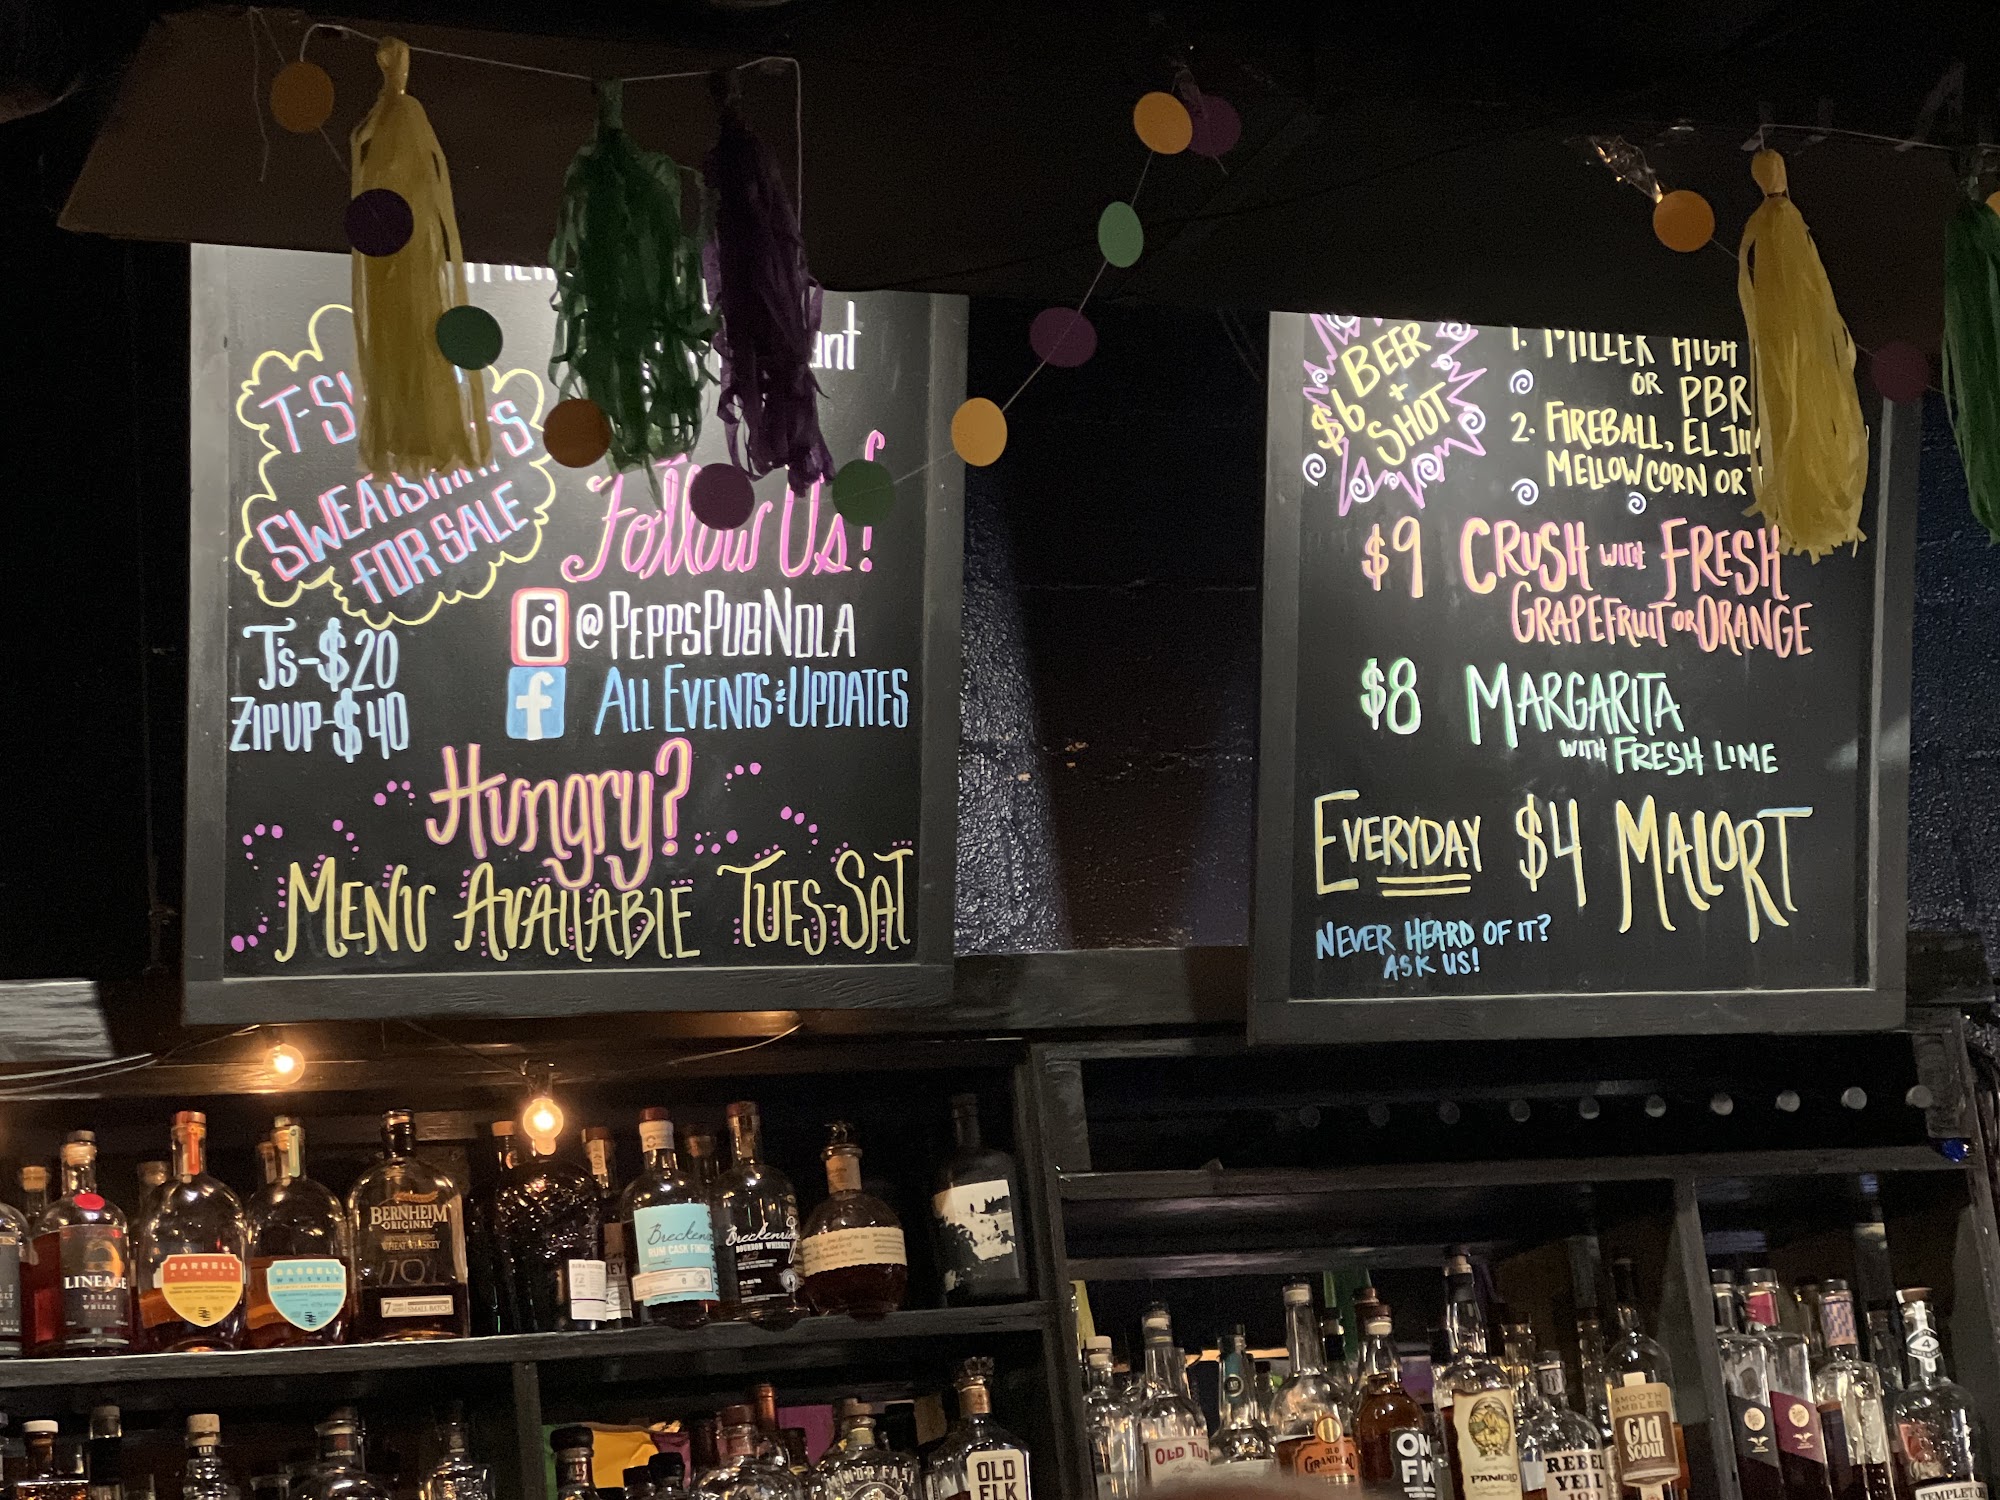 T-S
SWEATSHIRTS
FOR SALE
J's-$20
ZIPUP-$40
Follow Us!
@PEPPSPUBNOLA
f ALL EVENTS & UPDATES
Hungry?
MENU AVAILABLE TUES-SAT
$6 BEER
+
SHOT
1. MILLER HIGH
OR PBR
2. FIREBALL, EL JI
MELLOW CORN OR
$9 CRUSH WITH FRESH
GRAPEFRUIT OR ORANGE
$8 MARGARITA
WITH FRESH LIME
EVERYDAY $4 MALORT
NEVER HEARD OF IT?
ASK US!
LINEAGE
TEXAS
WHISKY
BARRELL
BARRELL
WHISKEY
BERNHEIM
ORIGINAL
WHEAT WHISKEY
7
SMALL BATCH
Breckenri
RUM CASK FINISH
Breckenridg
BOURBON WHISKEY
OLD
ELK
OLD TUB
OLD
GRAND-DAD
PANIOLO
REBEL
YELL
100
SMOOTH
AMBLER
Old
Scout
4
TEMPLETON